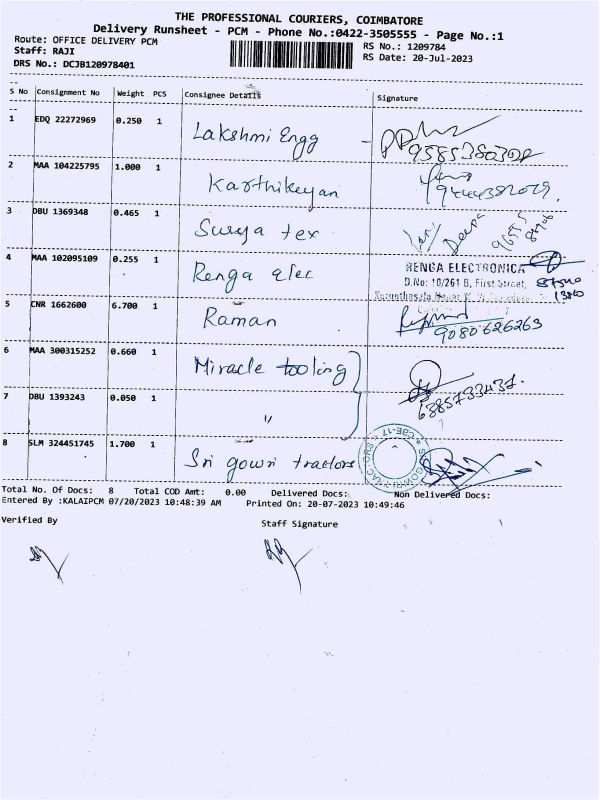 THE PROFESSIONAL COURIERS, COIMBATORE
Delivery Runsheet - PCM - Phone No.:0422-3505555 - Page No.:1
Route: OFFICE DELIVERY PCM
Staff: RAJI
DRS No.: DCJB120978401
RS No.: 1209784
RS Date: 20-Jul-2023
S No Consignment No Weight PCS Consignee Details Signature
1 EDQ 22272969 0.250 1 Lakshmi Engg
2 MAA 104225795 1.000 1 Karthikeyan
3 DBU 1369348 0.465 1 Surya tex
4 MAA 102095109 0.255 1 Renga elec
RENGA ELECTRONICA
D.No: 10/261 B, First Street,
5 CNR 1662600 6.700 1 Raman
9080626263
6 MAA 300315252 0.660 1 Miracle tooling
7 DBU 1393243 0.050 1 "
8 SLM 324451745 1.700 1 Sri gowri tractors
Total No. Of Docs: 8 Total COD Amt: 0.00 Delivered Docs: Non Delivered Docs:
Entered By :KALAIPCM 07/20/2023 10:48:39 AM Printed On: 20-07-2023 10:49:46
Verified By Staff Signature